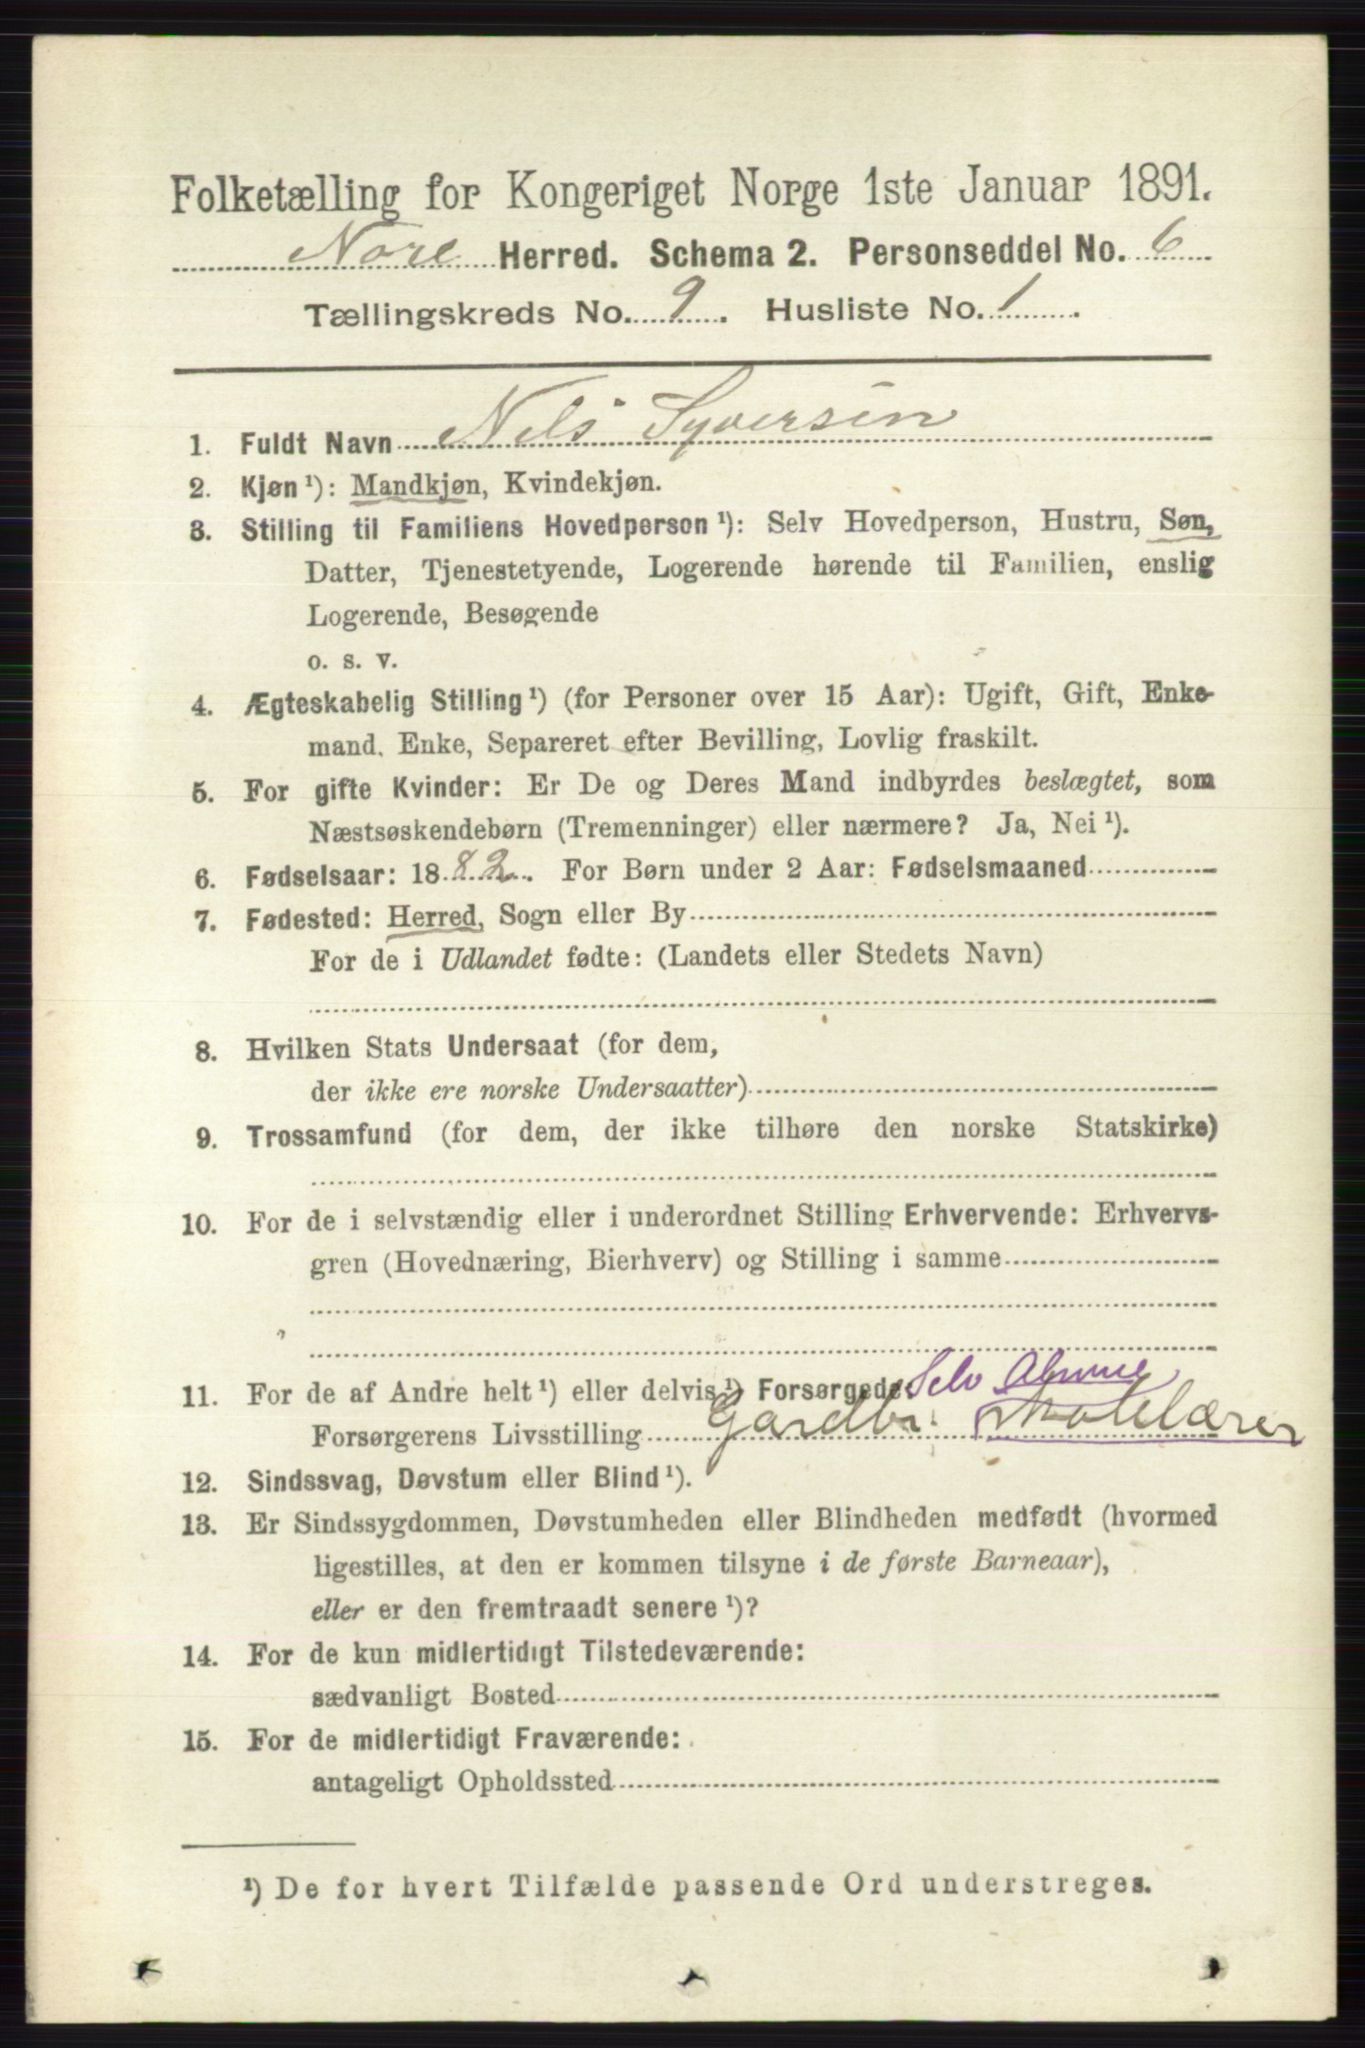 Folketælling for Kongeriget Norge 1ste Januar 1891.
Nore Herred. Schema 2. Personseddel No. 6
Tællingskreds No. 9. Husliste No. 1.
1. Fuldt Navn Nels Syversen
2. Kjøn ¹): Mandkjøn, Kvindekjøn.
3. Stilling til Familiens Hovedperson ¹): Selv Hovedperson, Hustru, Søn,
Datter, Tjenestetyende, Logerende hørende til Familien, enslig
Logerende, Besøgende
o. s. v.
4. Ægteskabelig Stilling ¹) (for Personer over 15 Aar): Ugift, Gift, Enke-
mand, Enke, Separeret efter Bevilling, Lovlig fraskilt.
5. For gifte Kvinder: Er De og Deres Mand indbyrdes beslægtet, som
Næstsøskendebørn (Tremenninger) eller nærmere? Ja, Nei ¹).
6. Fødselsaar: 1882. For Børn under 2 Aar: Fødselsmaaned
7. Fødested: Herred, Sogn eller By
For de i Udlandet fødte: (Landets eller Stedets Navn)
8. Hvilken Stats Undersaat (for dem,
der ikke ere norske Undersaatter)
9. Trossamfund (for dem, der ikke tilhøre den norske Statskirke)
10. For de i selvstændig eller i underordnet Stilling Erhvervende: Erhvervs-
gren (Hovednæring, Bierhverv) og Stilling i samme
Selv
11. For de af Andre helt ¹) eller delvis ¹) Forsørgede
Forsørgerens Livsstilling Gardbr. Skolelærer
12. Sindssvag, Døvstum eller Blind ¹).
13. Er Sindssygdommen, Døvstumheden eller Blindheden medfødt (hvormed
ligestilles, at den er kommen tilsyne i de første Barneaar),
eller er den fremtraadt senere ¹)?
14. For de kun midlertidigt Tilstedeværende:
sædvanligt Bosted
15. For de midlertidigt Fraværende:
antageligt Opholdssted
¹) De for hvert Tilfælde passende Ord understreges.